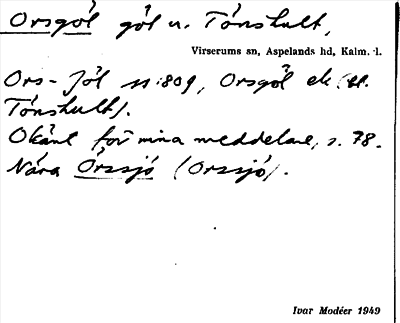 Orsgöl göl u. Tönshult,
Virserums sn, Aspelands hd, Kalm. l.
Ors-Jöl 11:809, Orsgöl ek (u.
Tönshult).
Okänt för mina meddelare, s. 78.
Nära Örssjö (Orssjö).
Ivar Modéer 1949